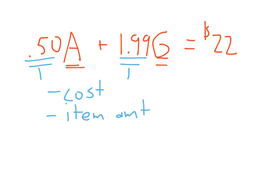 .50A + 1.99G = $22
- cost
- item amt